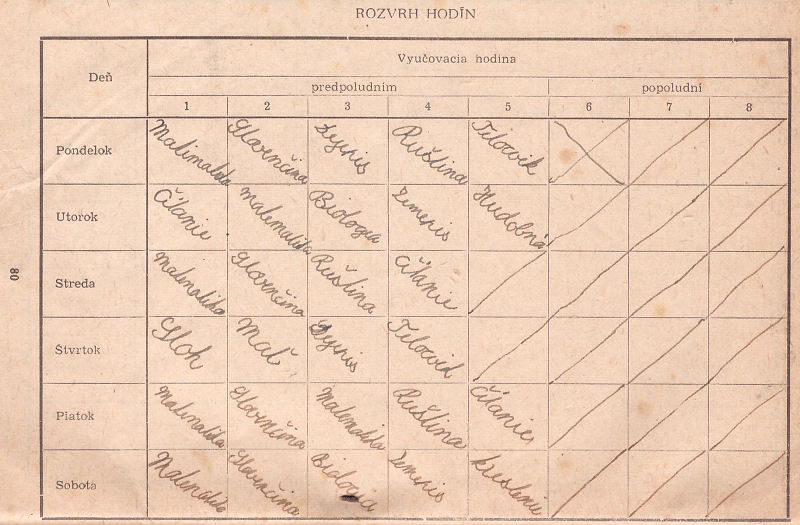 ROZVRH HODÍN
Deň
Vyučovacia hodina
predpoludním popoludní
1 2 3 4 5 6 7 8
Pondelok Matimatika Slovenčina Dejepis Ruština Telocvik
Utorok Čítanie Matematika Biologia Zemepis Hudobná
Streda Matematika Slovenčina Ruština Čítanie
Štvrtok Sloh Mat Dejepis Telocvik
Piatok Matematika Slovenčina Matematika Ruština Čítanie
Sobota Matematika Slovenčina Biologia Zemepis kreslenie
80